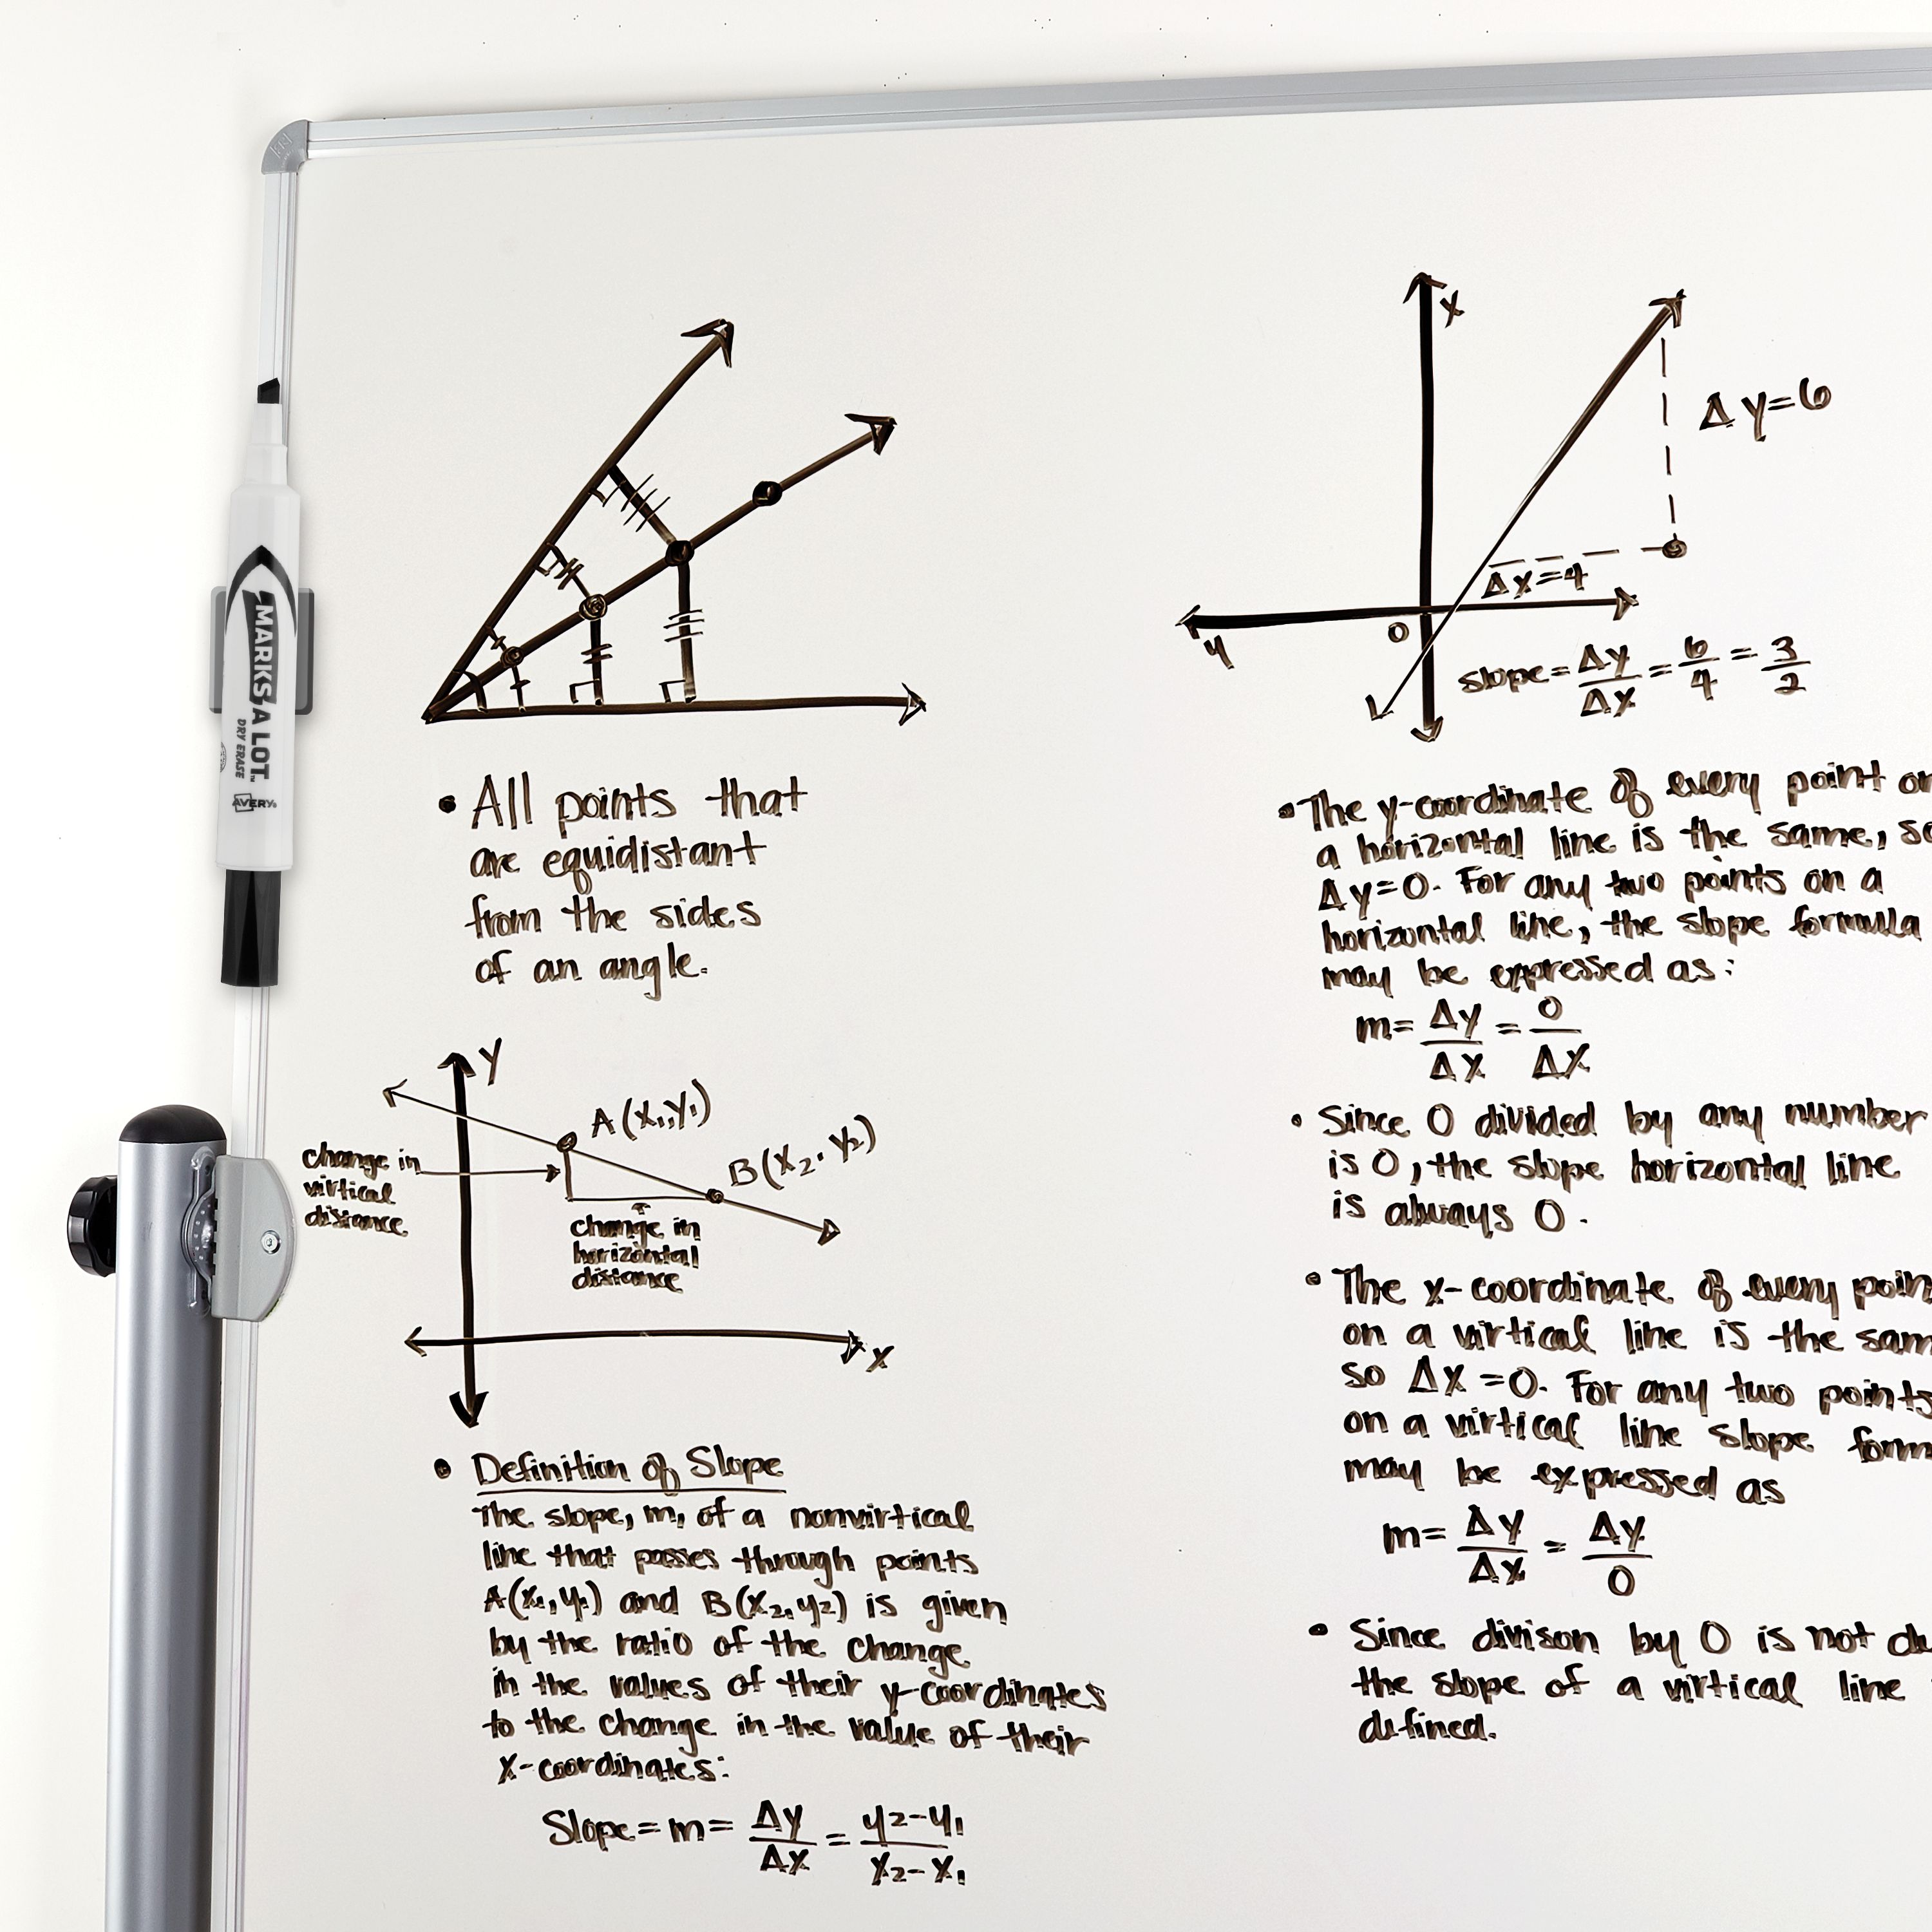 MARKS A LOT
DRY ERASE
AVERY
• All points that
are equidistant
from the sides
of an angle.
Y
A(x₁,y₁)
B(x₂, y₂)
change in
virtical
distance
change in
horizontal
distance
X
• Definition of Slope
The slope, m, of a nonvirtical
line that passes through points
A(x₁,y₁) and B(x₂,y₂) is given
by the ratio of the change
in the values of their y-coordinates
to the change in the value of their
x-coordinates:
Slope = m = Δy/Δx = y₂-y₁/x₂-x₁
x
Δy=6
Δx=4
y
0
slope = Δy/Δx = 6/4 = 3/2
• The y-coordinate of every point
a horizontal line is the same,
Δy=0. For any two points on a
horizontal line, the slope formula
may be expressed as:
m = Δy/Δx = 0/Δx
• Since 0 divided by any number
is 0, the slope horizontal line
is always 0.
• The x-coordinate of every
on a virtical line is the
so Δx =0. For any two points
on a virtical line slope
may be expressed as
m = Δy/Δx = Δy/0
• Since divison by 0 is not
the slope of a virtical line
defined.